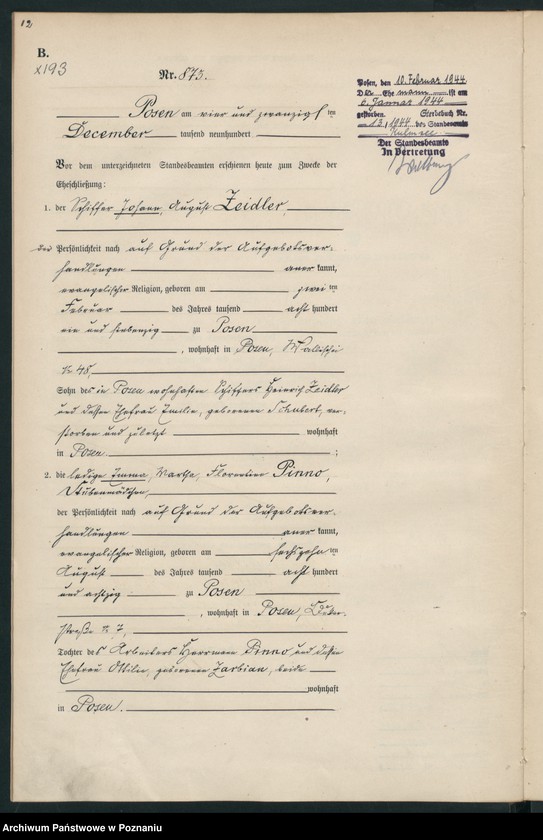 12
B.
X193
Nr. 875.
Posen am vier und zwanzigsten
December tausend neunhundert
Vor dem unterzeichneten Standesbeamten erschienen heute zum Zwecke der
Eheschließung:
1. der Schiffer Johann, August Zeidler,
der Persönlichkeit nach auf Grund der Aufgebotsver-
handlungen anerkannt,
evangelischer Religion, geboren am zwei ten
Februar des Jahres tausend acht hundert
ein und siebenzig zu Posen
, wohnhaft in Posen, Wallischei
№ 48,
Sohn des in Posen wohnhaften Schiffers Heinrich Zeidler
und dessen Ehefrau Emilie, geborenen Schubert, ver-
storben und zuletzt wohnhaft
in Posen ;
2. die ledige Emma, Martha, Florentine Pinno,
Stubenmädchen,
der Persönlichkeit nach auf Grund der Aufgebotsver-
handlungen anerkannt,
evangelischer Religion, geboren am sechszehn ten
August des Jahres tausend acht hundert
und achtzig zu Posen
, wohnhaft in Posen,
straße № 7,
Tochter des Arbeiters Herrmann Pinno und dessen
Ehefrau Ottilie, geborenen Zarbian, beide
wohnhaft
in Posen.
Posen, den 10. Februar 1944
D. Ehemann ist am
6. Januar 1944
gestorben. Sterbebuch Nr.
13/1944 des Standesamts
Kulmsee
Der Standesbeamte
In Vertretung
Archiwum Państwowe w Poznaniu